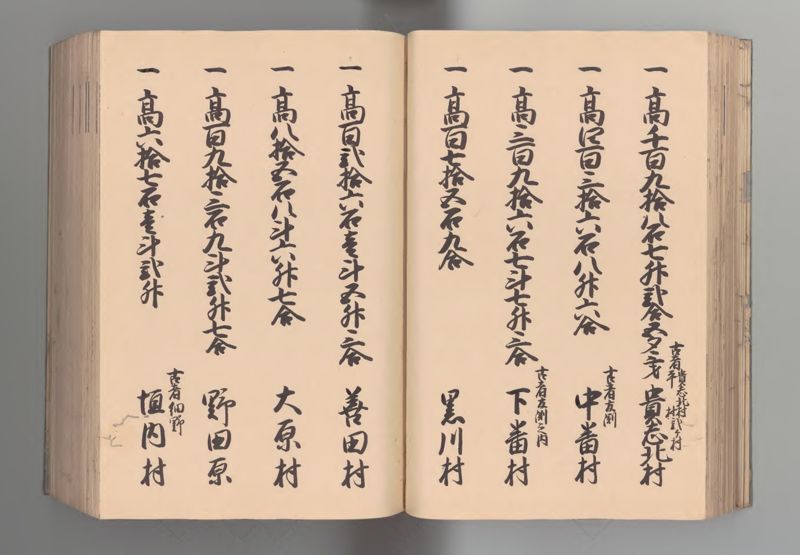 一 高千百九拾八石七升弐合五夕三才
貴志北村
一 高四百三拾六石八升六合
古者友渕
中畨村
一 高三百九拾六石七斗七升三合
古者友渕之内
下畨村
一 高百七拾五石九合
黒川村
一 高百弐拾六石壱斗五升三合
善田村
一 高八拾五石八斗六升七合
大原村
一 高百九拾三石九斗弐升七合
野田原
一 高六拾七石壱斗弐升
古者細野
垣内村